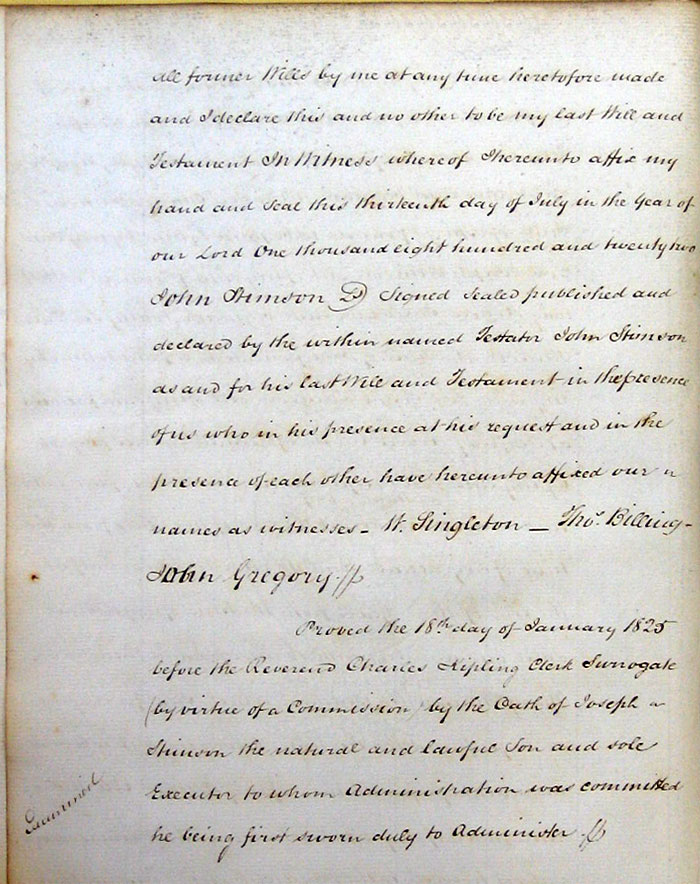 all former Wills by me at any time heretofore made
and I declare this and no other to be my last Will and
Testament In Witness whereof I hereunto affix my
hand and Seal this thirteenth day of July in the Year of
our Lord One thousand eight hundred and twenty two
John Stimson Signed Sealed published and
declared by the within named Testator John Stimson
as and for his last Will and Testament in the presence
of us who in his presence at his request and in the
presence of each other have hereunto affixed our
names as witnesses - W. Singleton - Thos. Billing -
John Gregory.
Proved the 18th day of January 1825
before the Reverend Charles Kipling Clerk Surrogate
(by virtue of a Commission) by the Oath of Joseph
Stimson the natural and lawful Son and sole
Executor to whom Administration was committed
he being first sworn duly to Administer.
Examined